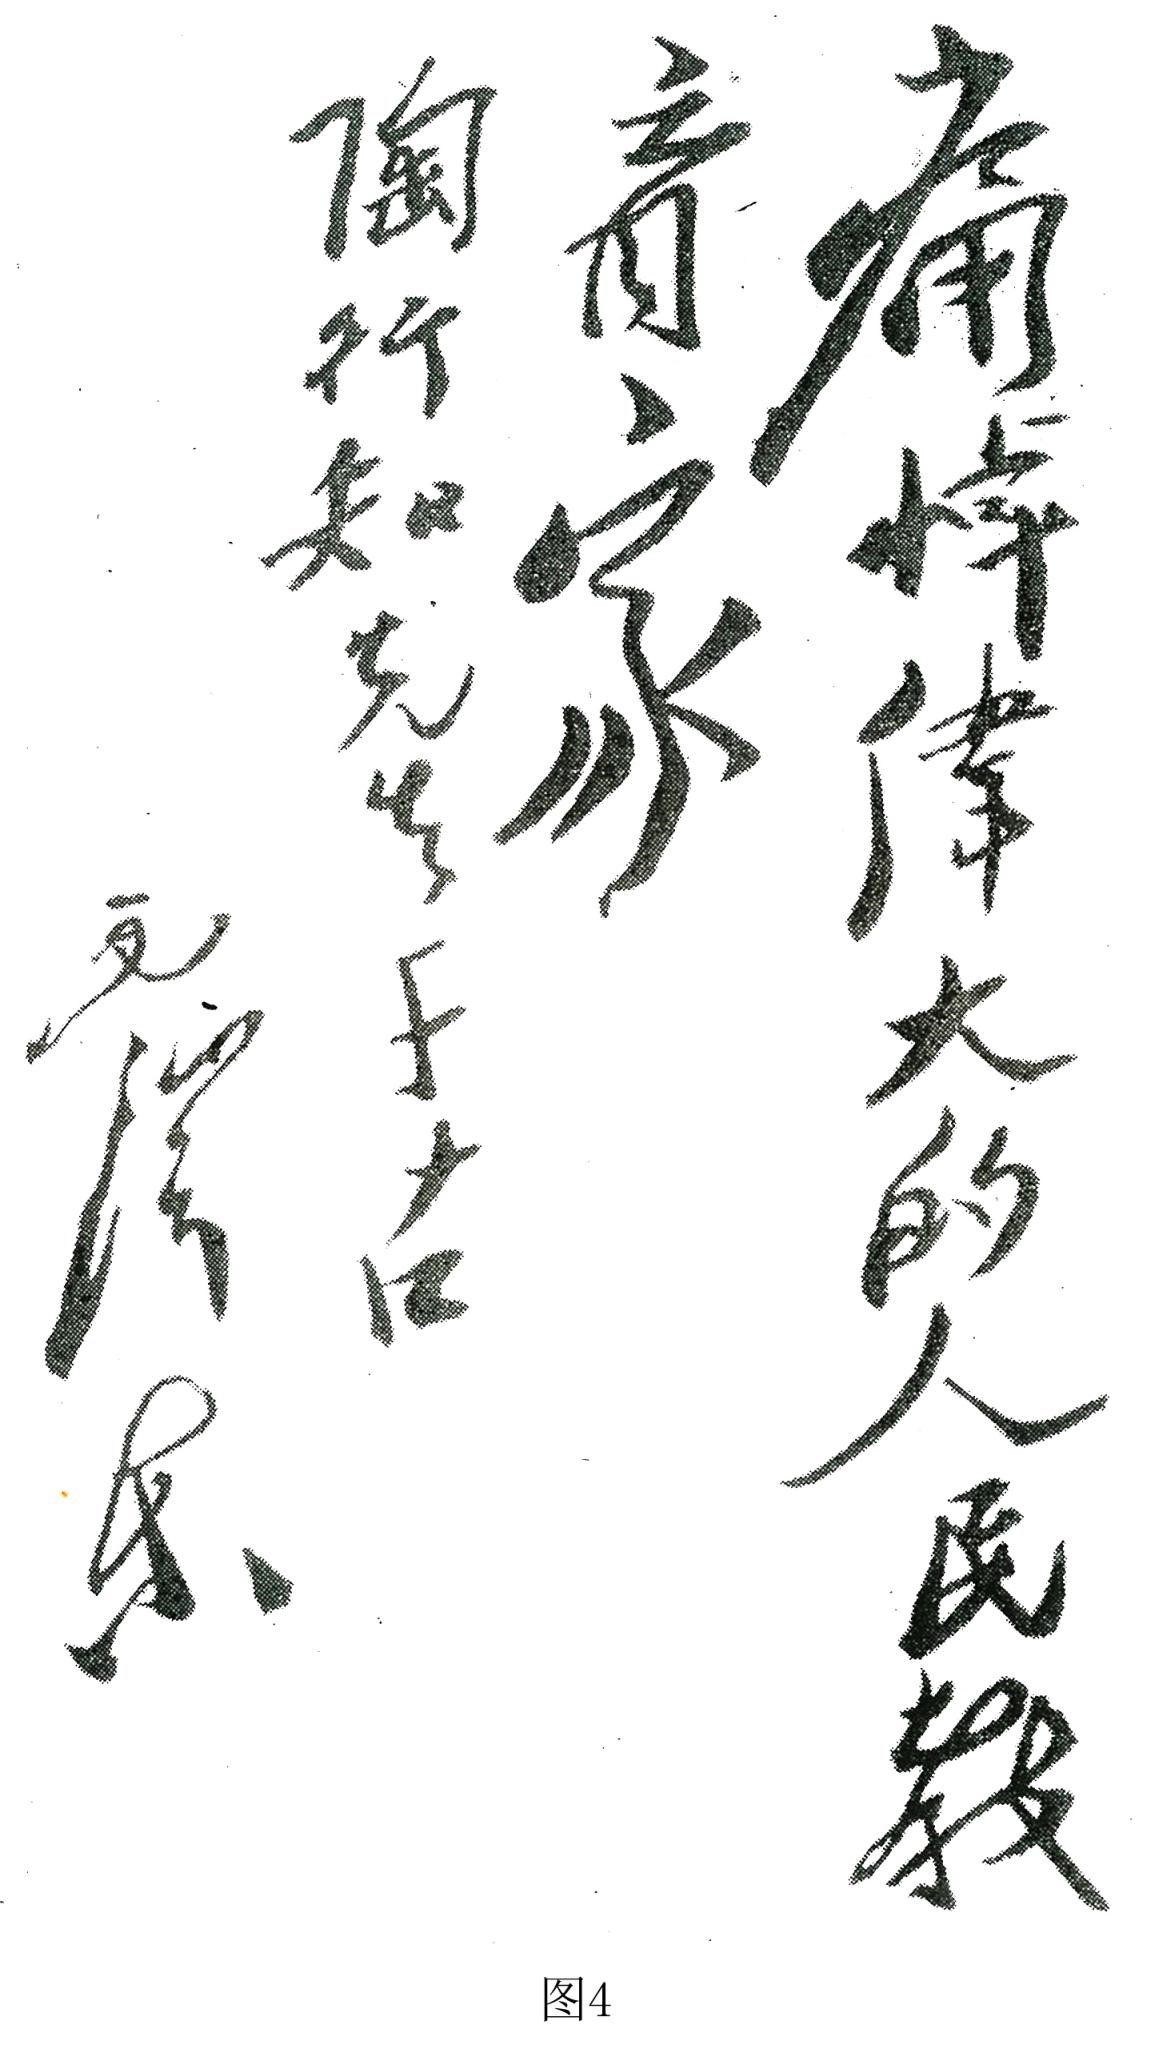 痛悼偉大的人民教
育家
陶行知先生千古
毛澤东
图4